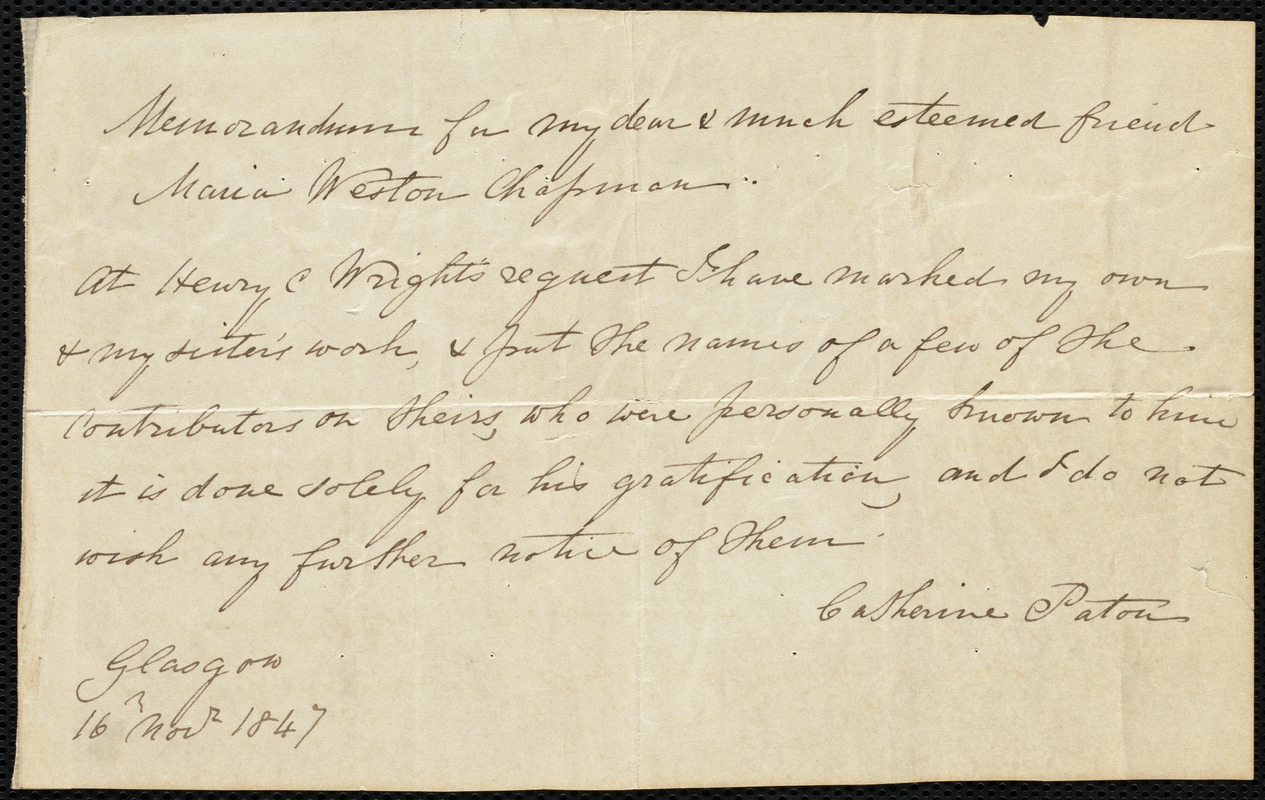 Memorandum for my dear & much esteemed friend
Maria Weston Chapman.
At Henry C Wright's request I have marked my own
& my sister's work, & put the names of a few of the
Contributors on theirs, who were personally known to him
it is done solely for his gratification, and I do not
wish any further notice of them.
Catherine Paton
Glasgow
16 Novr 1847